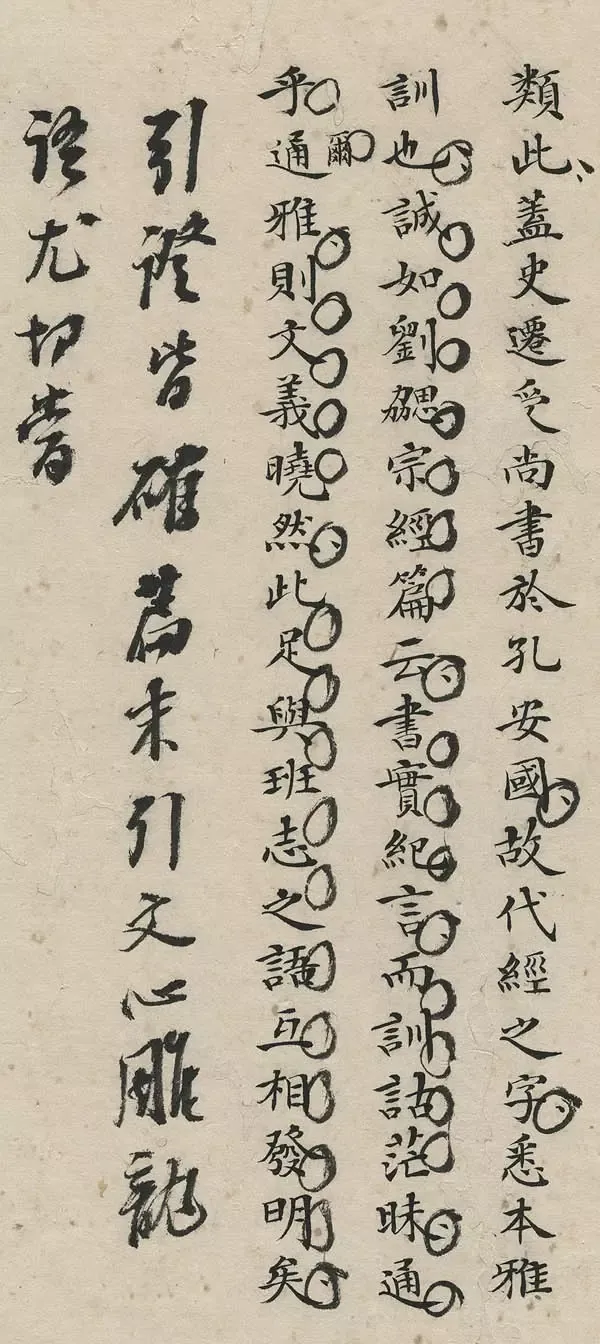 類此蓋史遷受尚書於孔安國故代經之字悉本雅
訓也誠如劉勰宗經篇云書實紀言而訓詁茫昧通
乎爾通雅則文義曉然此足與班志之語互相發明矣
引證皆確篇末引文心雕龍
語尤切當